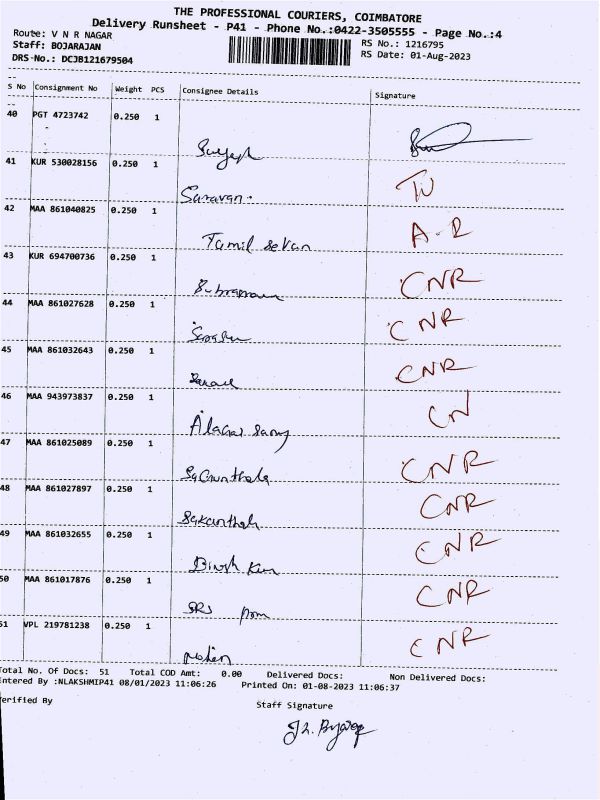 THE PROFESSIONAL COURIERS, COIMBATORE
Delivery Runsheet - P41 - Phone No.:0422-3505555 - Page No.:4
Route: V N R NAGAR
Staff: BOJARAJAN RS No.: 1216795
DRS-No.: DCJB121679504 RS Date: 01-Aug-2023
S No Consignment No Weight PCS Consignee Details Signature
40 PGT 4723742 0.250 1
41 KUR 530028156 0.250 1
Saravan. TV
42 MAA 861040825 0.250 1
Tamil Selvan A.R
43 KUR 694700736 0.250 1
CNR
44 MAA 861027628 0.250 1
CNR
45 MAA 861032643 0.250 1
CNR
46 MAA 943973837 0.250 1
Alagar Samy CN
47 MAA 861025089 0.250 1
CNR
48 MAA 861027897 0.250 1
CNR
49 MAA 861032655 0.250 1
CNR
50 MAA 861017876 0.250 1
CNR
51 VPL 219781238 0.250 1
CNR
Total No. Of Docs: 51 Total COD Amt: 0.00 Delivered Docs: Non Delivered Docs:
Entered By :NLAKSHMIP41 08/01/2023 11:06:26 Printed On: 01-08-2023 11:06:37
Verified By Staff Signature